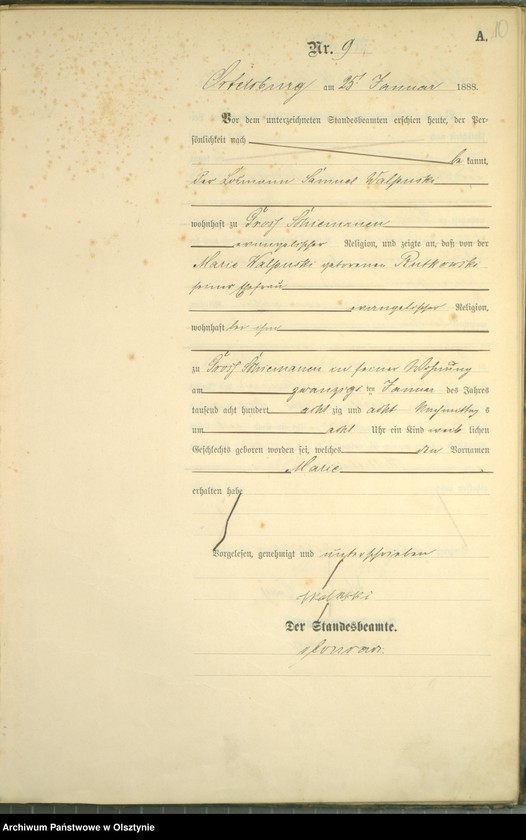 A. 10
Nr. 9
Ortelsburg am 25t Januar 1888.
Vor dem unterzeichneten Standesbeamten erschien heute, der Per-
sönlichkeit nach
be kannt,
der Losmann Samuel
wohnhaft zu Gross Schiemanen
evangelischer Religion, und zeigte an, daß von der
Marie geborenen Rutkowski
seiner Ehefrau
evangelischer Religion,
wohnhaft bei ihm
zu Gross Schiemanen in seiner Wohnung
am zwanzigsten Januar des Jahres
tausend acht hundert acht zig und acht Nachmittag s
um acht Uhr ein Kind weib lichen
Geschlechts geboren worden sei, welches den Vornamen
Marie
erhalten habe
Vorgelesen, genehmigt und unterschrieben
Der Standesbeamte.
Archiwum Państwowe w Olsztynie